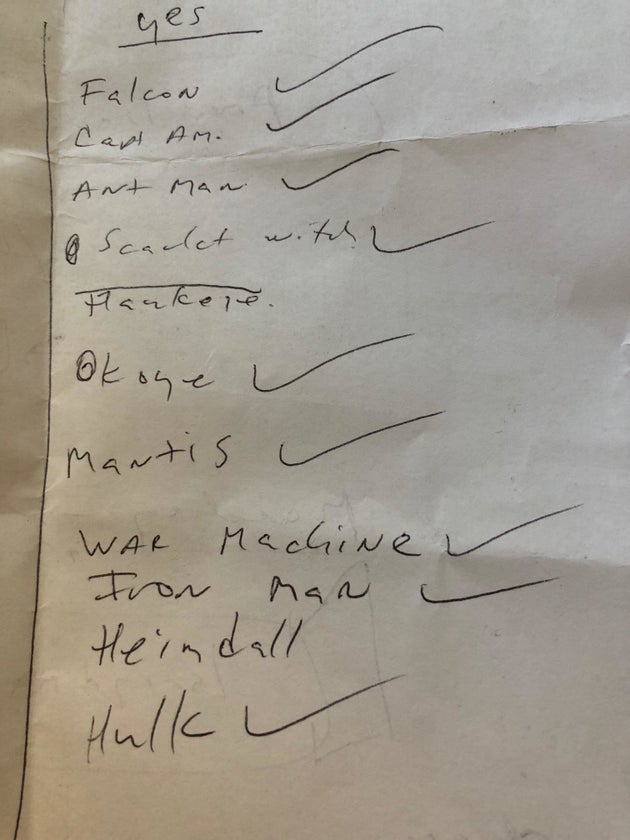 yes
Falcon
Capt Am.
Ant Man
Scarlet witch
Hawkeye.
Okoye
Mantis
WAR MachiNe
Iron Man
Heimdall
Hulk